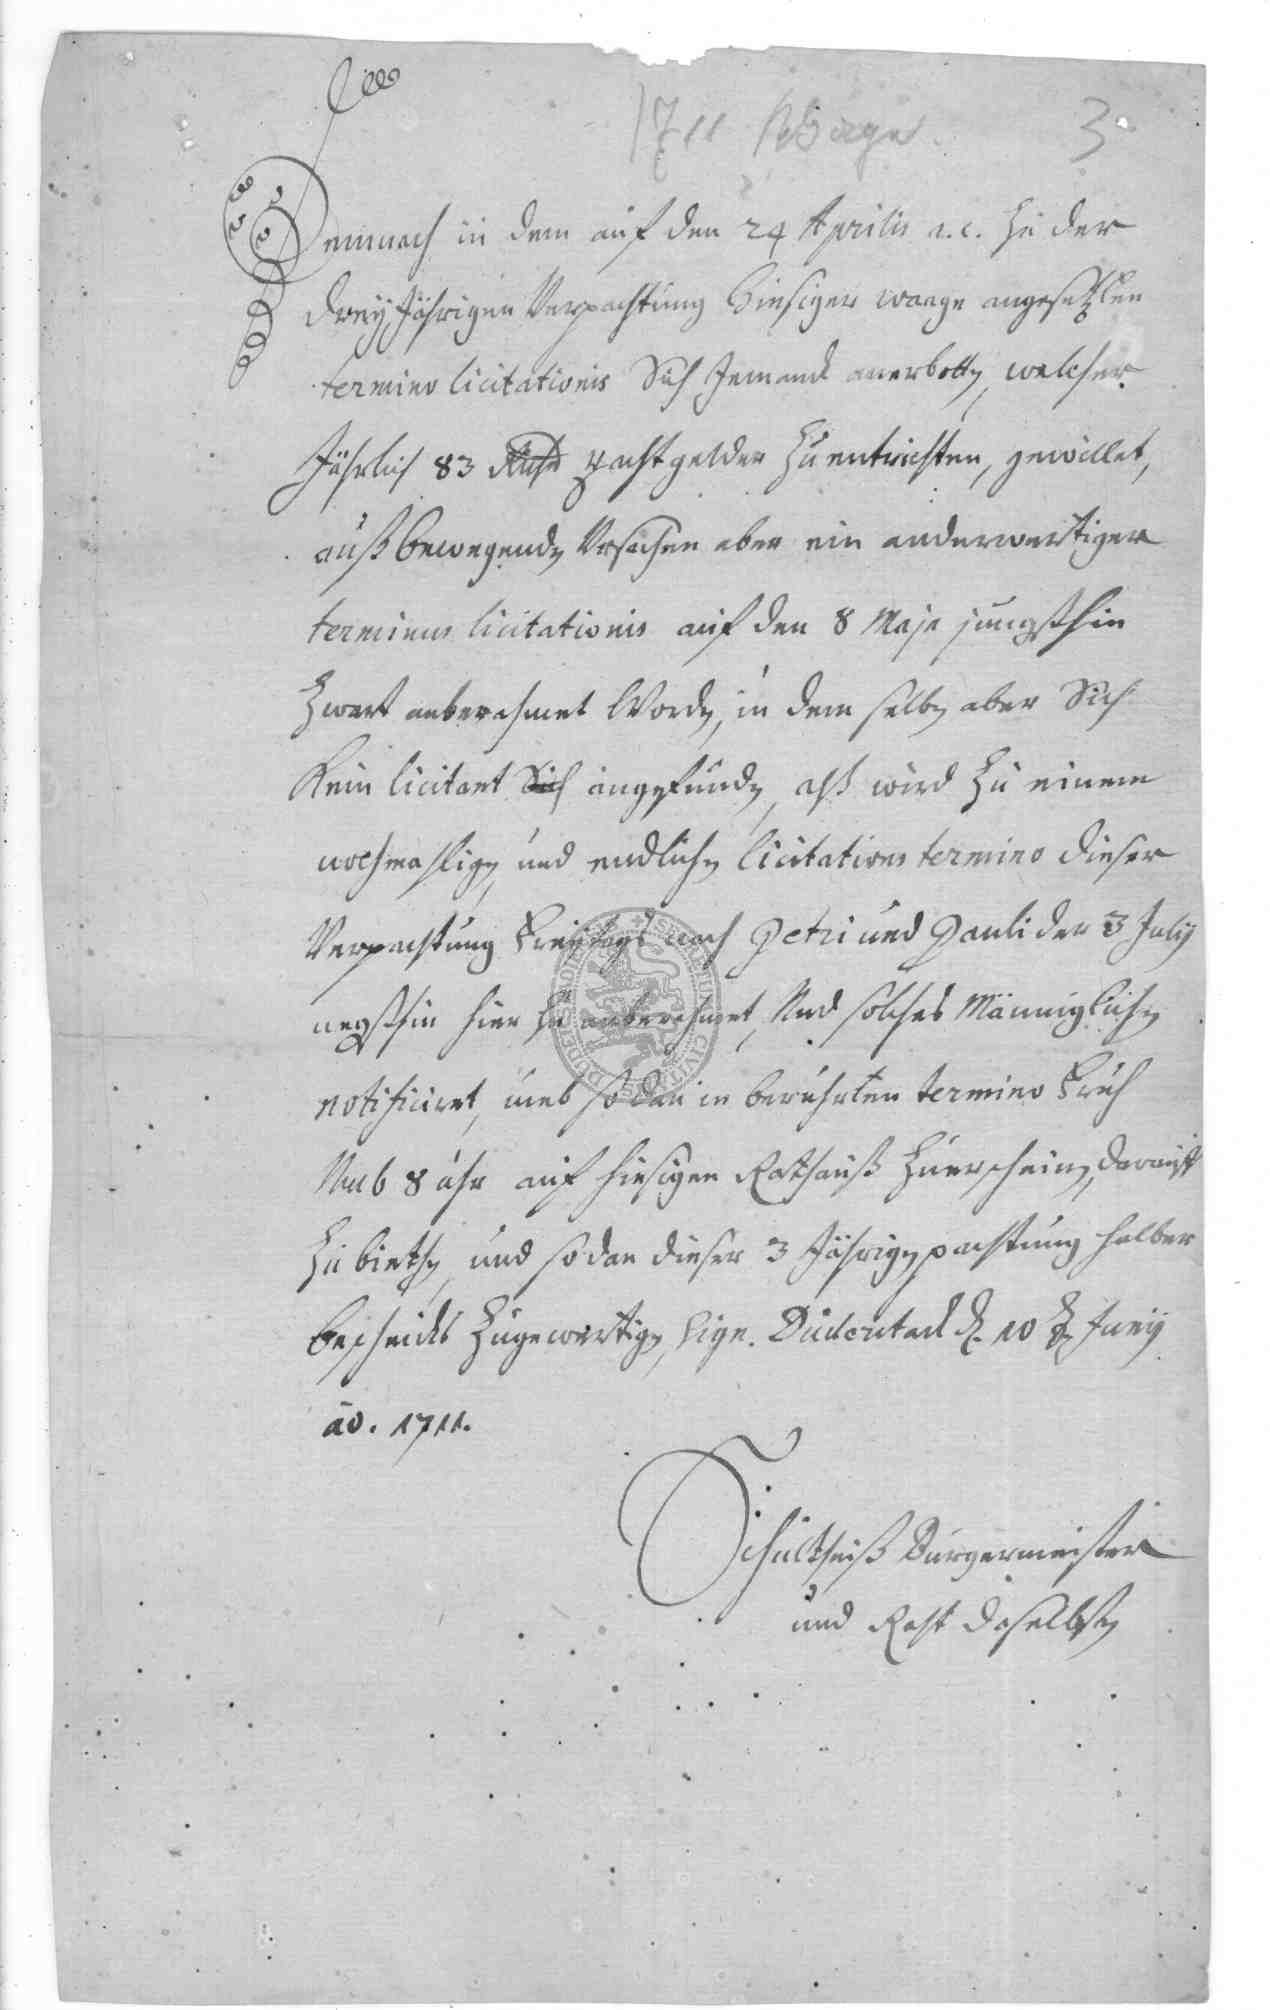 1711 Waage. 3
Demnach in dem auf den 24 Aprilis a. c. zu der
dreyjährigen Verpachtung hiesiger waage angesetzten
termino licitationis Sich Jemand anerbotten, welcher
Jährlich 83 Rthlr pachtgelder zu entrichten, gewillet,
auß bewegenden Ursachen aber ein anderwertiger
terminus licitationis auf den 8 Maje jungsthin
zwart anberahmet Worden, in dem selben aber Sich
Kein licitant Sich angefunden, alß wird zu einem
nochmahligen und endlichen licitations termino dieser
Verpachtung Freytags nach Petri und Pauli der 3 July
negsthin hier zu anberahmet, Und solches Männiglichen
notificiret, umb so dan in berührten termino Früh
Umb 8 uhr auf hiesigen Rathauß zuerscheinen, darauff
zu biethen und so dan dieser 3 Jährigen pachtung halber
bescheids zugewertigen, Sign. Duderstad d. 10 Juny
ao. 1711.
Schultheiß Burgermeister
und Raht daselbsten